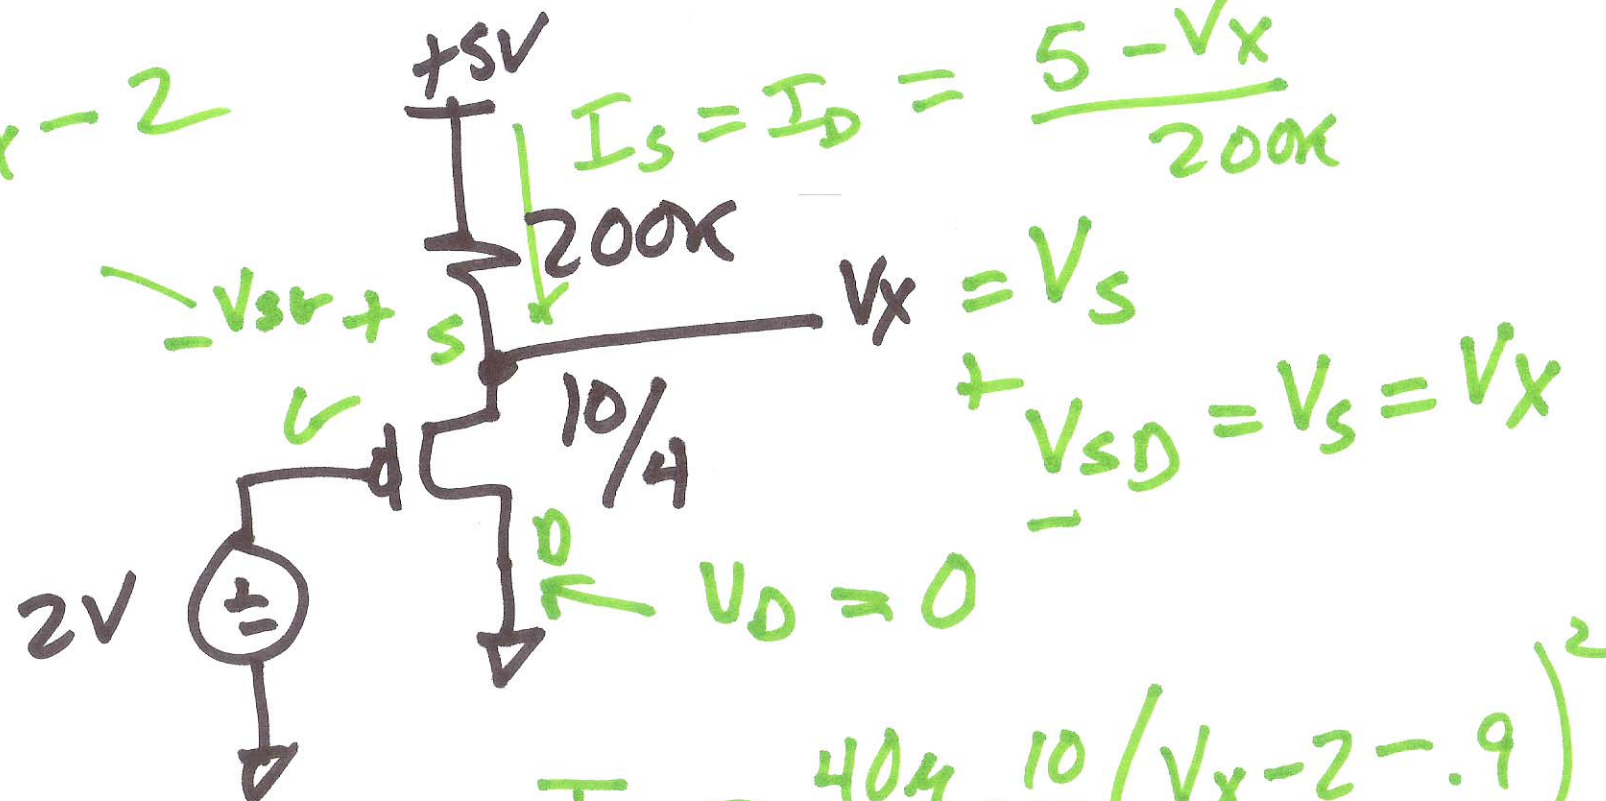 +5V
x - 2
I_S = I_D = 5 - Vx / 200K
200K
- VSG + S
Vx = VS
G
10/4
+ VSD = VS = Vx
-
D
2V
+
-
VD = 0
I = 40μ 10 (Vx - 2 - .9)²